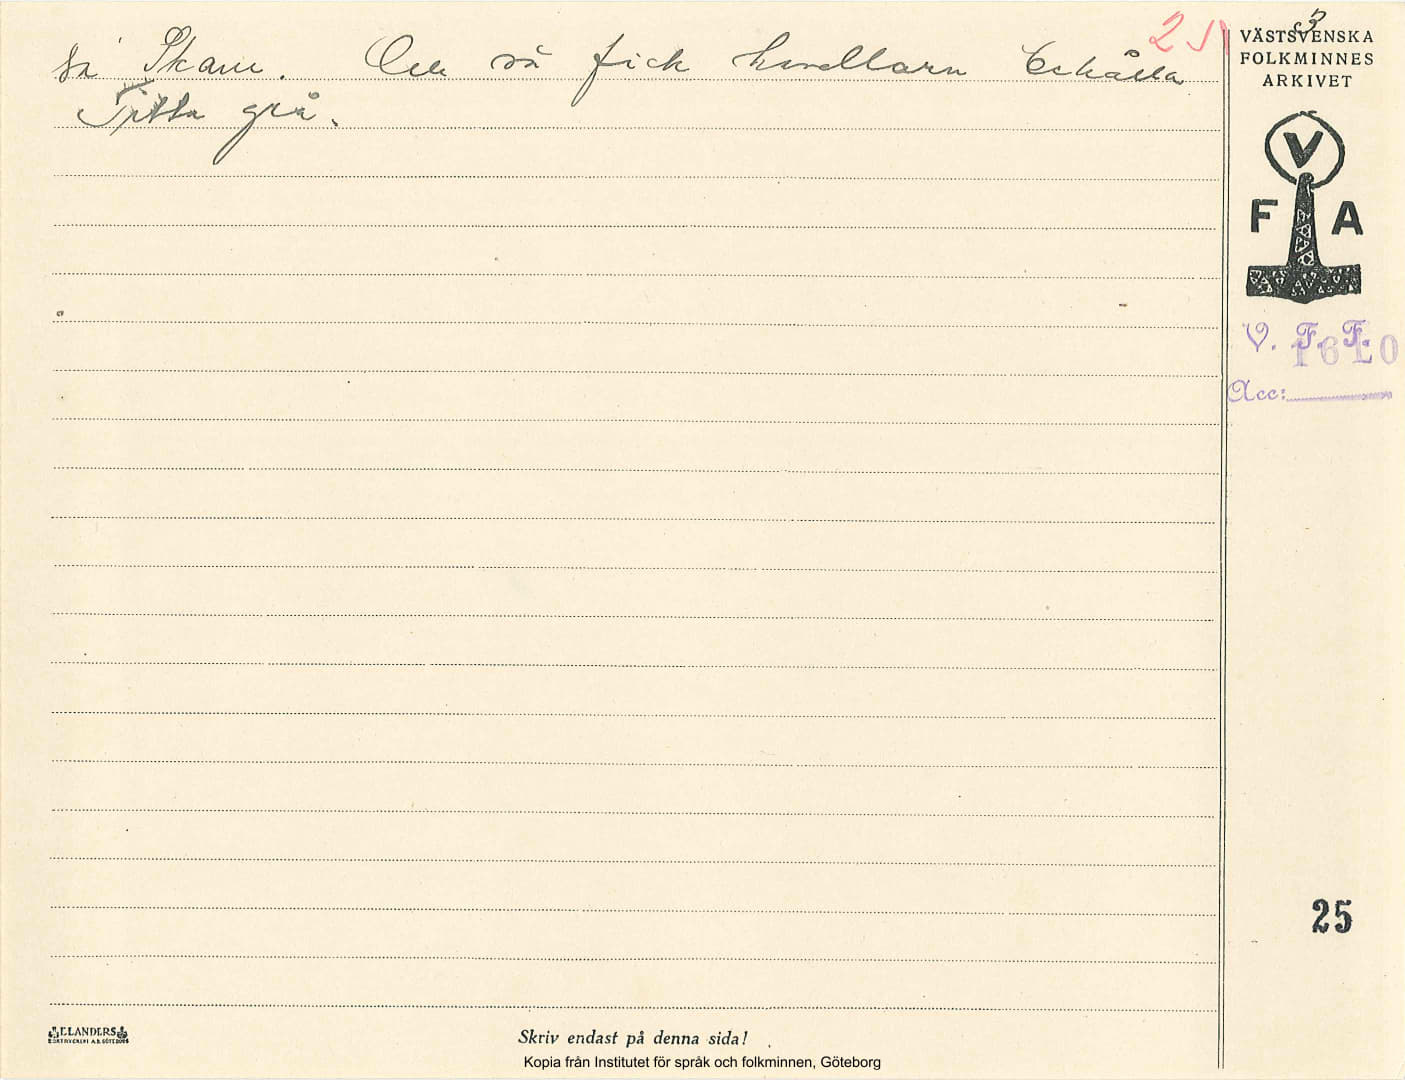 sa' Skam. Om så fick handlarn behålla
Titta grå.
25
3
VÄSTSVENSKA
FOLKMINNES
ARKIVET
V
F A
V. F. F.
1610
Acc:
25
ELANDERS
BOKTRYCKERI A.B. GÖTEBORG
Skriv endast på denna sida!
Kopia från Institutet för språk och folkminnen, Göteborg